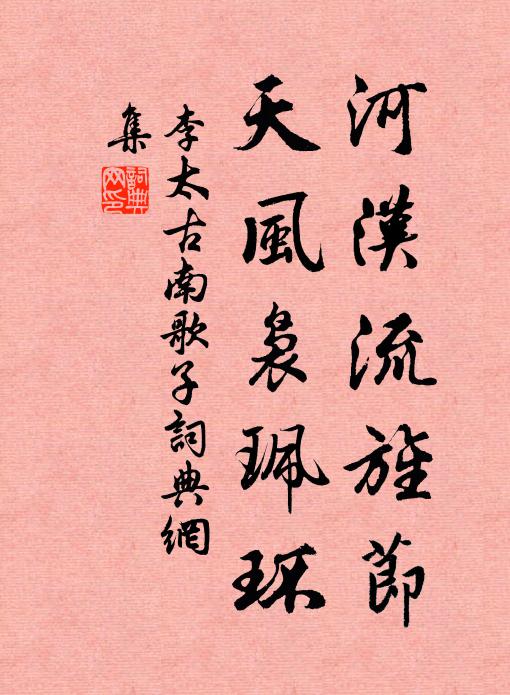 河漢流旌節
天風裊珮環
李太古南歌子詞典網
集
詞典網印